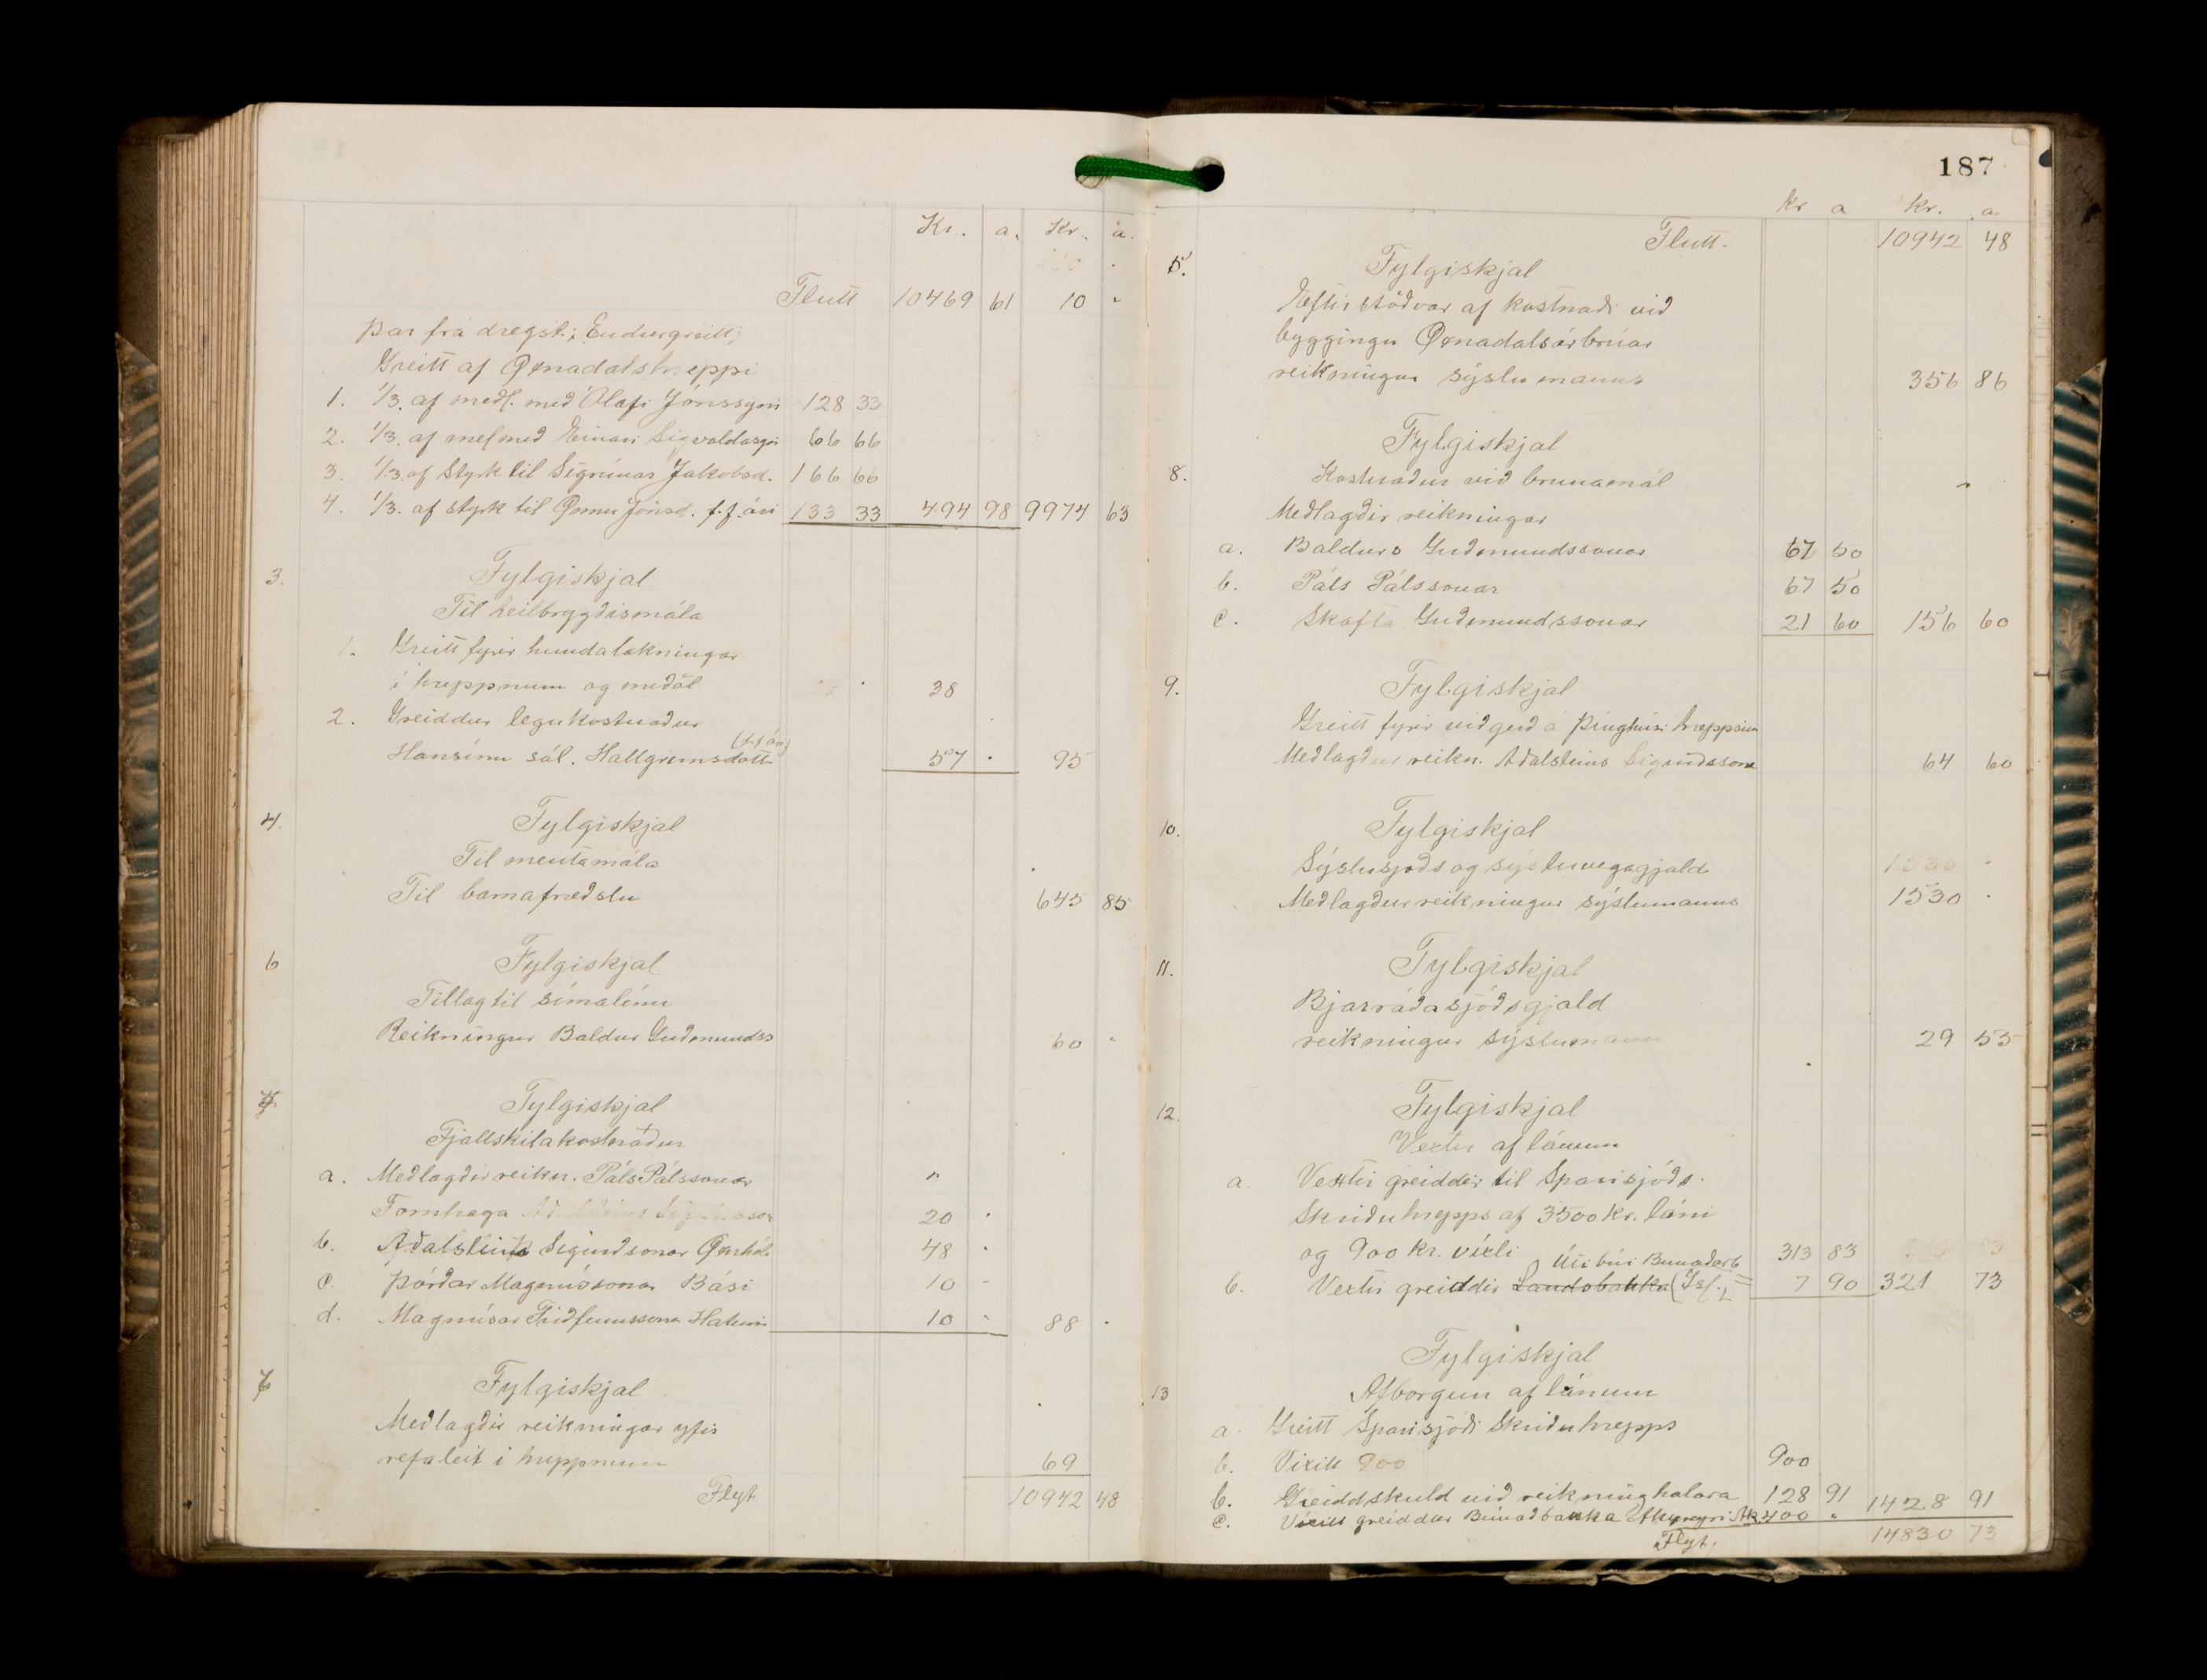 Kr. a. Kr. a.
Flutt 10469 61 10 "
Þar frá dregst; Endurgreitt;
Greitt af Öxnadalshreppi
1. 1/3. af meðl. með Ólafi Jónssyni 128 33
2. 1/3. af með með Einari Sigvaldasyni 66 66
3. 1/3. af Styrk til Sigrúnar Jakobsd. 166 66
4. 1/3. af styrk til Önnu Jónsd. f.f. ári 133 33 494 98 9974 63
3. Fylgiskjal
Til heilbrygðismála
1. Greitt fyrir hundalækningar
í hreppnum og meðöl 38
2. Greiddur legukostnaður
(f.f. ári)
Hansínu sál. Hallgrímsdótt 57 . 95
4. Fylgiskjal
Til mentamála
Til barnafræðslu 645 85
6 Fylgiskjal
Tillag til símalínu
Reikningur Baldur Guðmundss 60 "
Fylgiskjal
Fjallskilakostnaður
a. Meðlagðir reikn. Páls Pálssonar "
Fornhaga 20 .
b. Aðalsteins Sigurðsonar 48 .
c. Þórðar Magnússonar Bási 10 -
d. Magnúsar Friðfinnssonar 10 - 88 .
Fylgiskjal
Meðlagðir reikningar yfir
refaleit í hreppnum 69
Flyt 10942 48
187
kr a kr. a
Flutt. 10942 48
5. Fylgiskjal
Eftirstöðvar af kostnaði við
byggingu Öxnadalsárbrúar
reikningur sýslumanns 356 86
Fylgiskjal
8. Kostnaður við brunamál "
Meðlagðir reikningar
a. Baldurs Guðmundssonar 67 50
b. Páls Pálssonar 67 50
c. Skafta Guðmundssonar 21 60 156 60
9. Fylgiskjal
Greitt fyrir viðgerð á Þinghúsi hreppsins
Meðlagður reikn. Aðalsteins Sigurðssonar 64 60
10. Fylgiskjal
Sýslusjóðs og sýsluvegagjald 1530 .
Meðlagður reikningur sýslumanns 1530 .
11. Fylgiskjal
Bjarráðasjóðsgjald
reikningur sýslumann 29 55
12. Fylgiskjal
Vextir af lánum
a. Vextir greiddir til Sparisjóðs.
Skriðuhrepps af 3500 kr. láni
og 900 kr. víxli 313 83
Útibúi Bunaðarb
b. Vextir greiddir Landsbanka 7 90 321 73
Fylgiskjal
13 Afborgun af lánum
a. Greitt Sparisjóði Skriðuhrepps
b. Víxill 900 900
b. Greidd skuld við reikninghalara 128 91 1428 91
c. Víxill greiddur Búnaðbanka Akureyri Ak. 400 "
Flyt, 14830 73